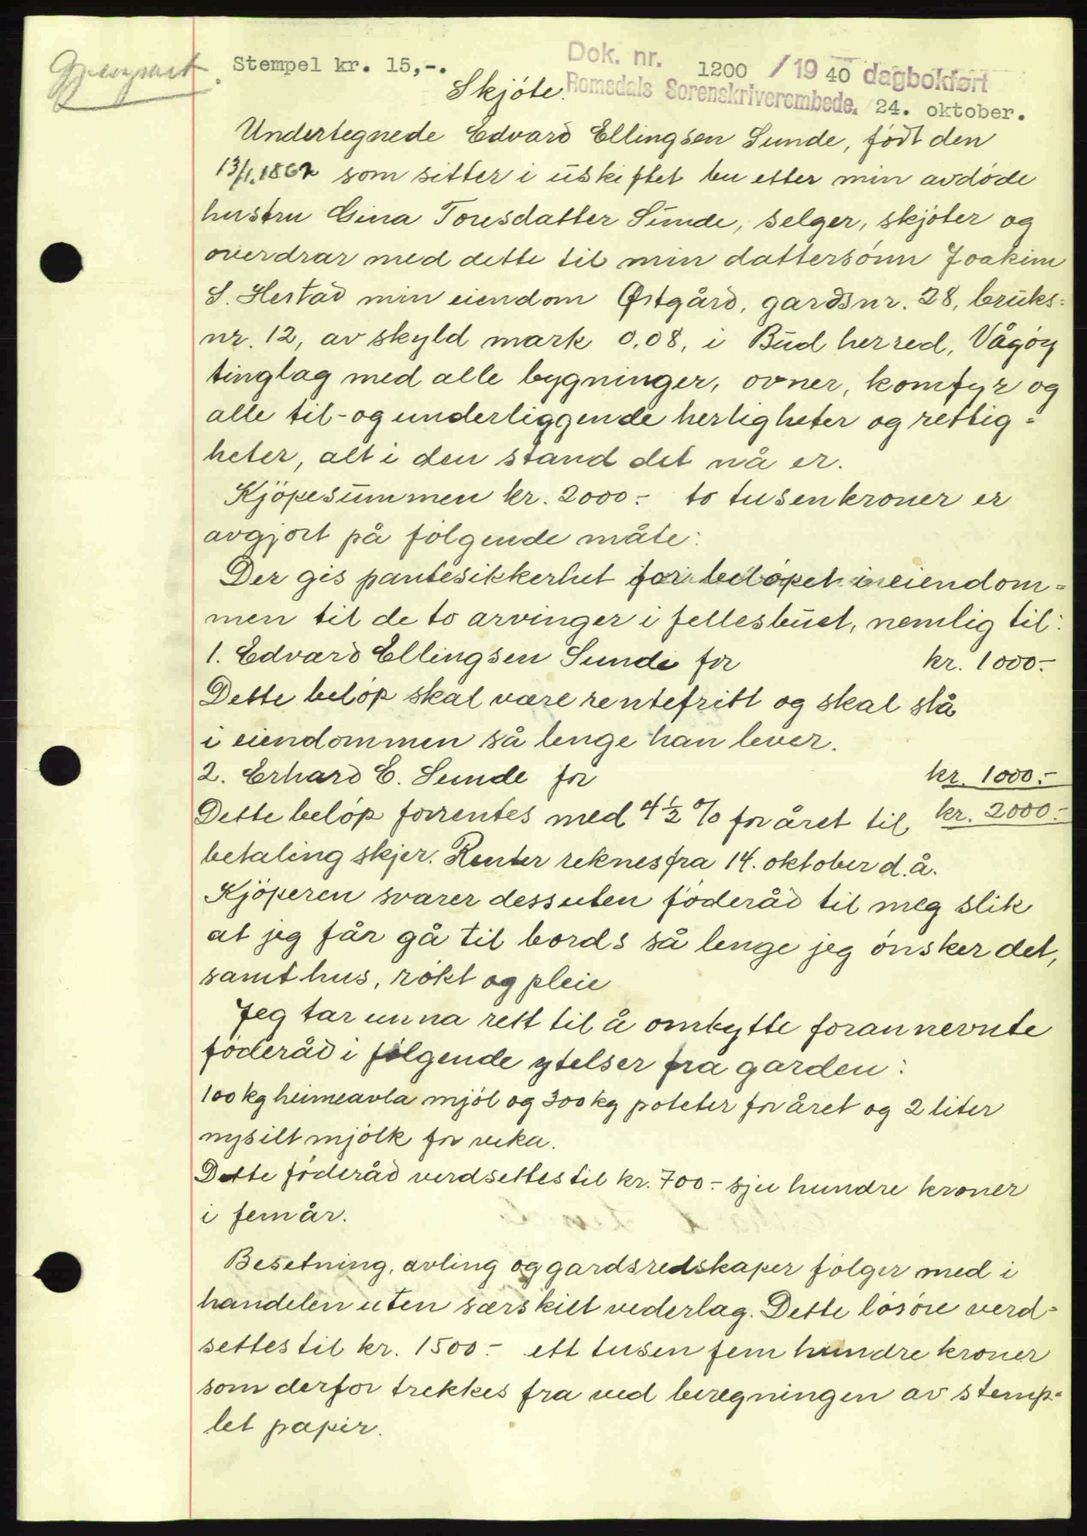 Gjenpart.
Stempel kr. 15,-.
Dok. nr. 1200 / 19 40 dagbokført
Romsdals Sorenskriverembede. 24. oktober.
Skjöte.
Undertegnede Edvard Ellingsen Sunde, født den
13/1.1862 som sitter i uskiftet bu etter min avdøde
hustru Gina Toresdatter Sunde, selger, skjøter og
overdrar med dette til min dattersønn Joakim
S. Hestad min eiendom Østgård, gardsnr. 28, bruks=
nr. 12, av skyld mark 0,08, i Bud herred, Vågøy
tinglag med alle bygninger, ovner, komfyr og
alle til- og underliggende herligheter og rettig=
heter, alt i den stand det nå er.
Kjöpesummen kr. 2000.- to tusen kroner er
avgjort på følgende måte:
Der gis pantesikkerhet for beløpet i eiendom=
men til de to arvinger i fellesbuet, nemlig til:
1. Edvard Ellingsen Sunde for kr. 1000.-
Dette beløp skal være rentefritt og skal stå
i eiendommen så lenge han lever.
2. Erhard E. Sunde for kr. 1000.-
Dette beløp forrentes med 4 1/2 % for året til kr. 2000.-
betaling skjer. Renter reknes fra 14. oktober d.å.
Kjöperen svarer dessuten føderåd til meg slik
at jeg får gå til bords så lenge jeg ønsker det,
samt hus, røkt og pleie
Jeg tar unna rett til å ombytte forannevnte
føderåd i følgende ytelser fra garden:
100 kg heimeavla mjøl og 300 kg poteter for året og 2 liter
nysilt mjølk for veka.
Dette føderåd verdsettes til kr. 700.- sju hundre kroner
i fem år.
Besetning, avling og gardsredskaper følger med i
handelen uten særskilt vederlag. Dette løsøre verd=
settes til kr. 1500.- ett tusen fem hundre kroner
som derfor trekkes fra ved beregningen av stemp=
let papir.